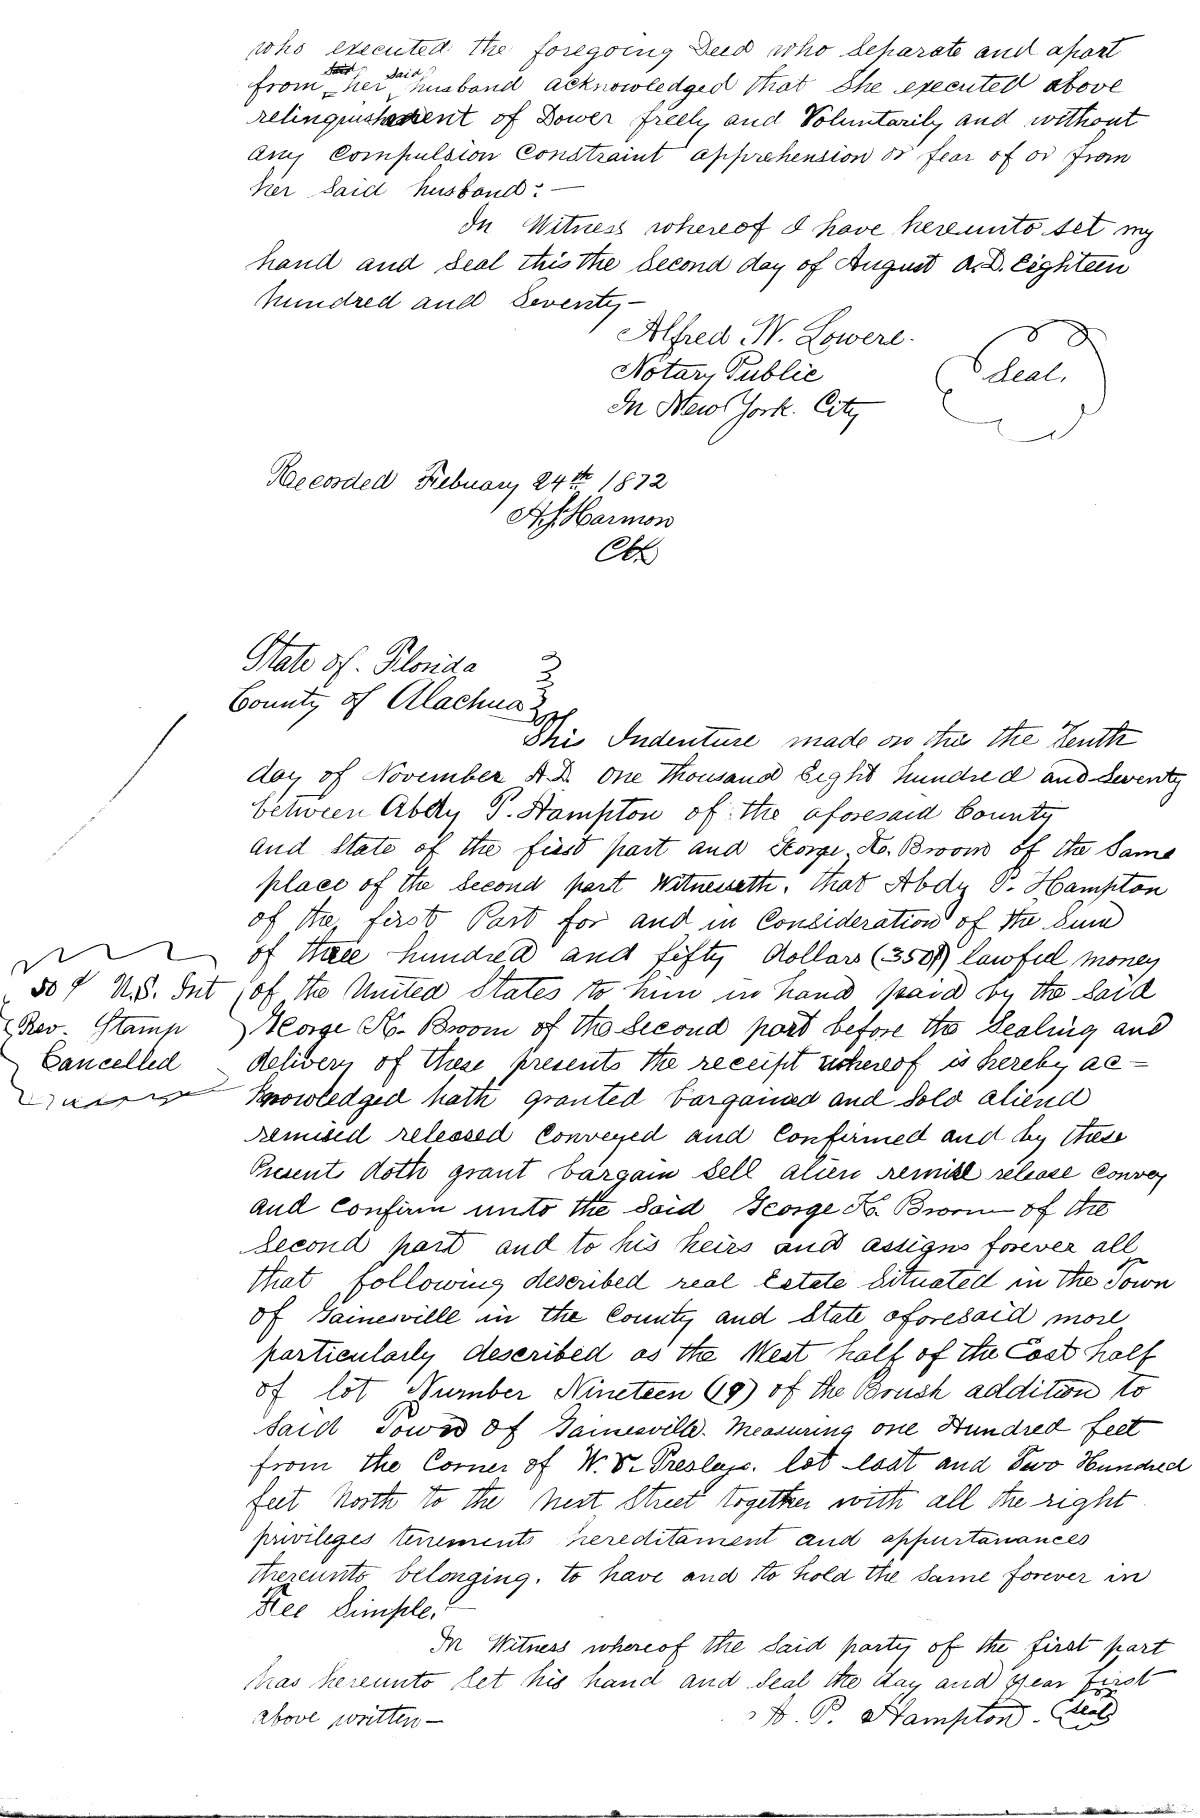 who executed the foregoing Deed who Separate and apart
from her said husband acknowledged that She executed above
relinquishment of Dower freely and Voluntarily and without
any Compulsion Constraint apprehension or fear of or from
her Said husband: —
In Witness whereof I have hereunto set my
hand and Seal this the Second day of August A.D. Eighteen
hundred and Seventy —
Alfred W. Lowere.
Notary Public
In New York. City
Seal.
Recorded Febuary 24th 1872
H.S. Harmon
Clk
State of Florida
County of Alachua
This Indenture made on this the Tenth
day of November A.D. One thousand Eight hundred and Seventy
between Abdy P. Hampton of the aforesaid County
and State of the first part and George K. Broom of the Same
place of the Second part Witnesseth. that Abdy P. Hampton
of the first Part for and in Consideration of the Sum
of three hundred and fifty dollars (350$) lawful money
of the United States to him in hand paid by the Said
George K. Broom of the Second part before the Sealing and
delivery of these presents the receipt whereof is hereby ac=
knowledged hath granted bargained and Sold aliend
remised released Conveyed and Confirmed and by these
Present doth grant bargain Sell alien remise release Convey
and Confirm unto the Said George K. Broom — of the
Second part and to his heirs and assigns forever all
that following described real Estate Situated in the Town
of Gainesville in the County and State aforesaid more
particularly described as the West half of the East half
of lot Number Nineteen (19) of the Brush addition to
Said Town of Gainesville. Measuring one Hundred feet
from the Corner of W. V. Preslays. lot East and Two Hundred
feet North to the Next Street together with all the right
privileges tenements hereditament and appurtanances
thereunto belonging. to have and to hold the same forever in
Fee Simple. —
In Witness whereof the Said party of the first part
has hereunto Set his hand and Seal the day and year first
above written —
A. P. Hampton. Seal
50¢ U.S. Int
Rev. Stamp
Cancelled